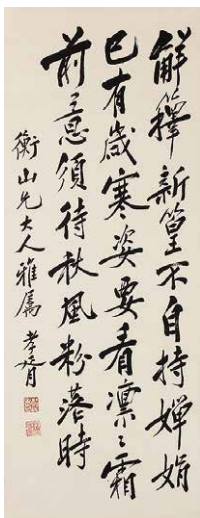 解籜新篁不自持嬋娟
已有歲寒姿要看凜〻霜
前意須待秋風粉落時
衡山兄大人雅屬 孝胥